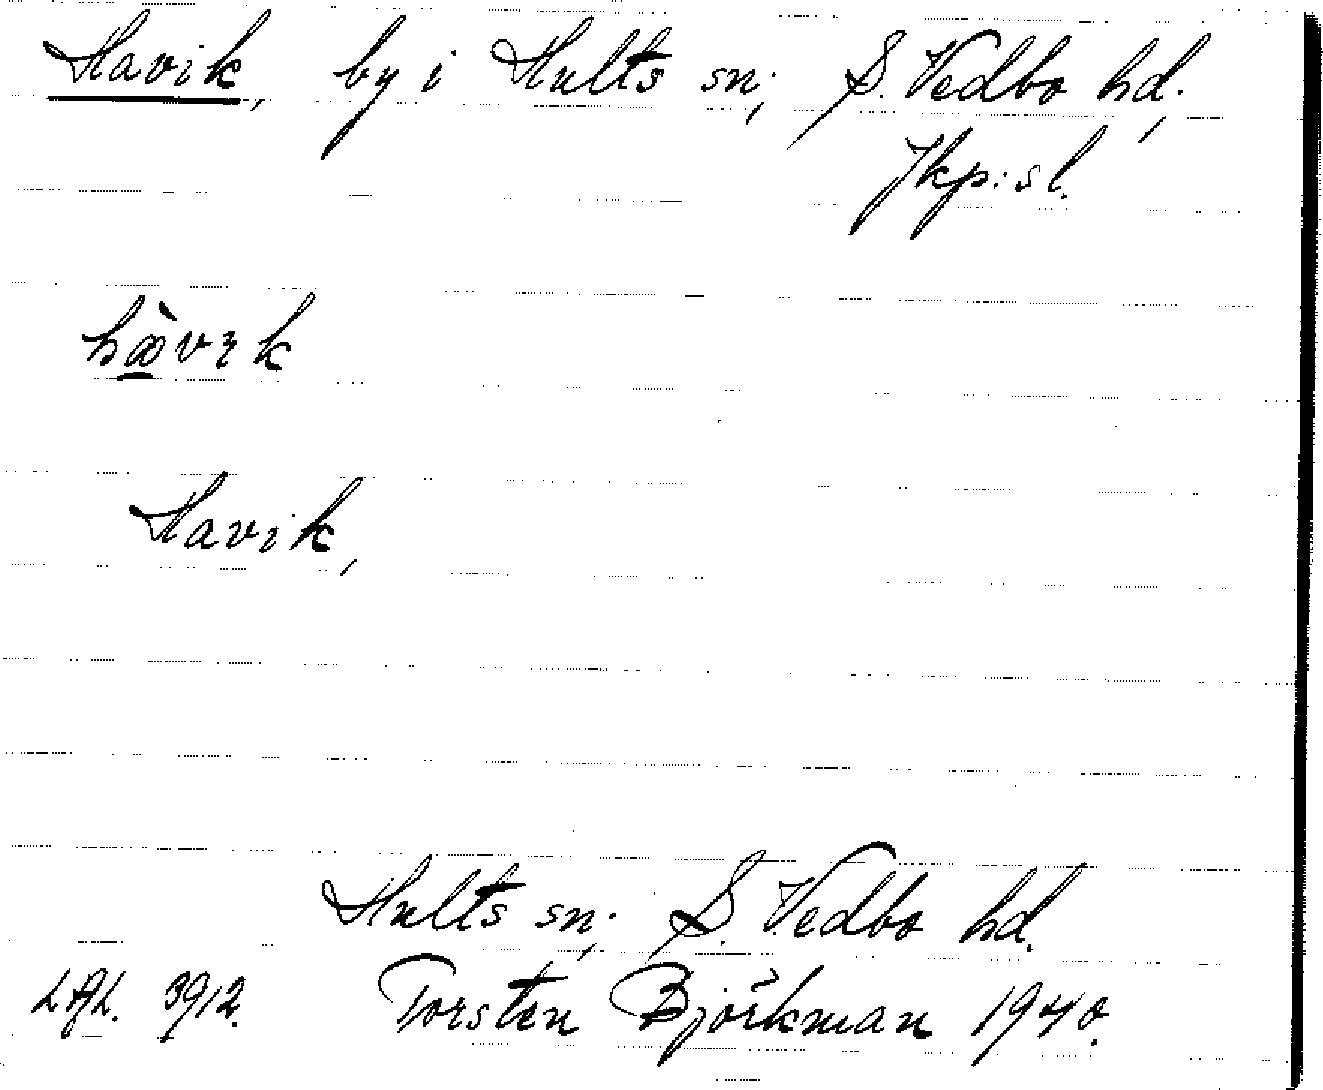 Havik, by i Hults sn, S. Vedbo hd,
Jkp:s l.
Havik,
Hults sn, S. Vedbo hd.
3912. Torsten Björkman 1940.